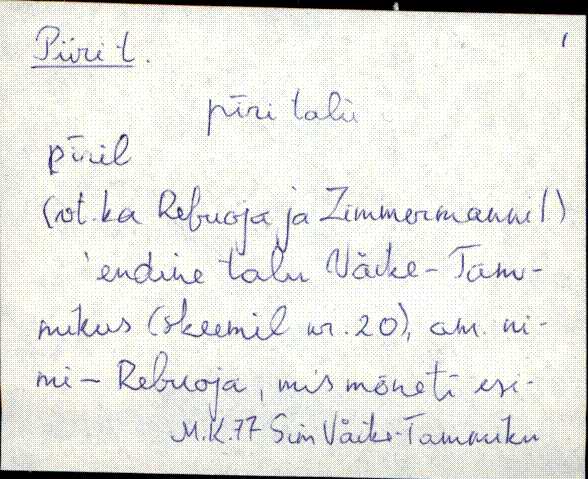 Piiri t.
1
pīri talu
pīril
(vt. ka Rebuoja ja Zimmermanni t.)
'endine talu Väike-Tam-
mikus (skeemil nr. 20), am. ni-
mi - Rebuoja, mis mõneti esi-
M.K.77 Sim Väike-Tammiku